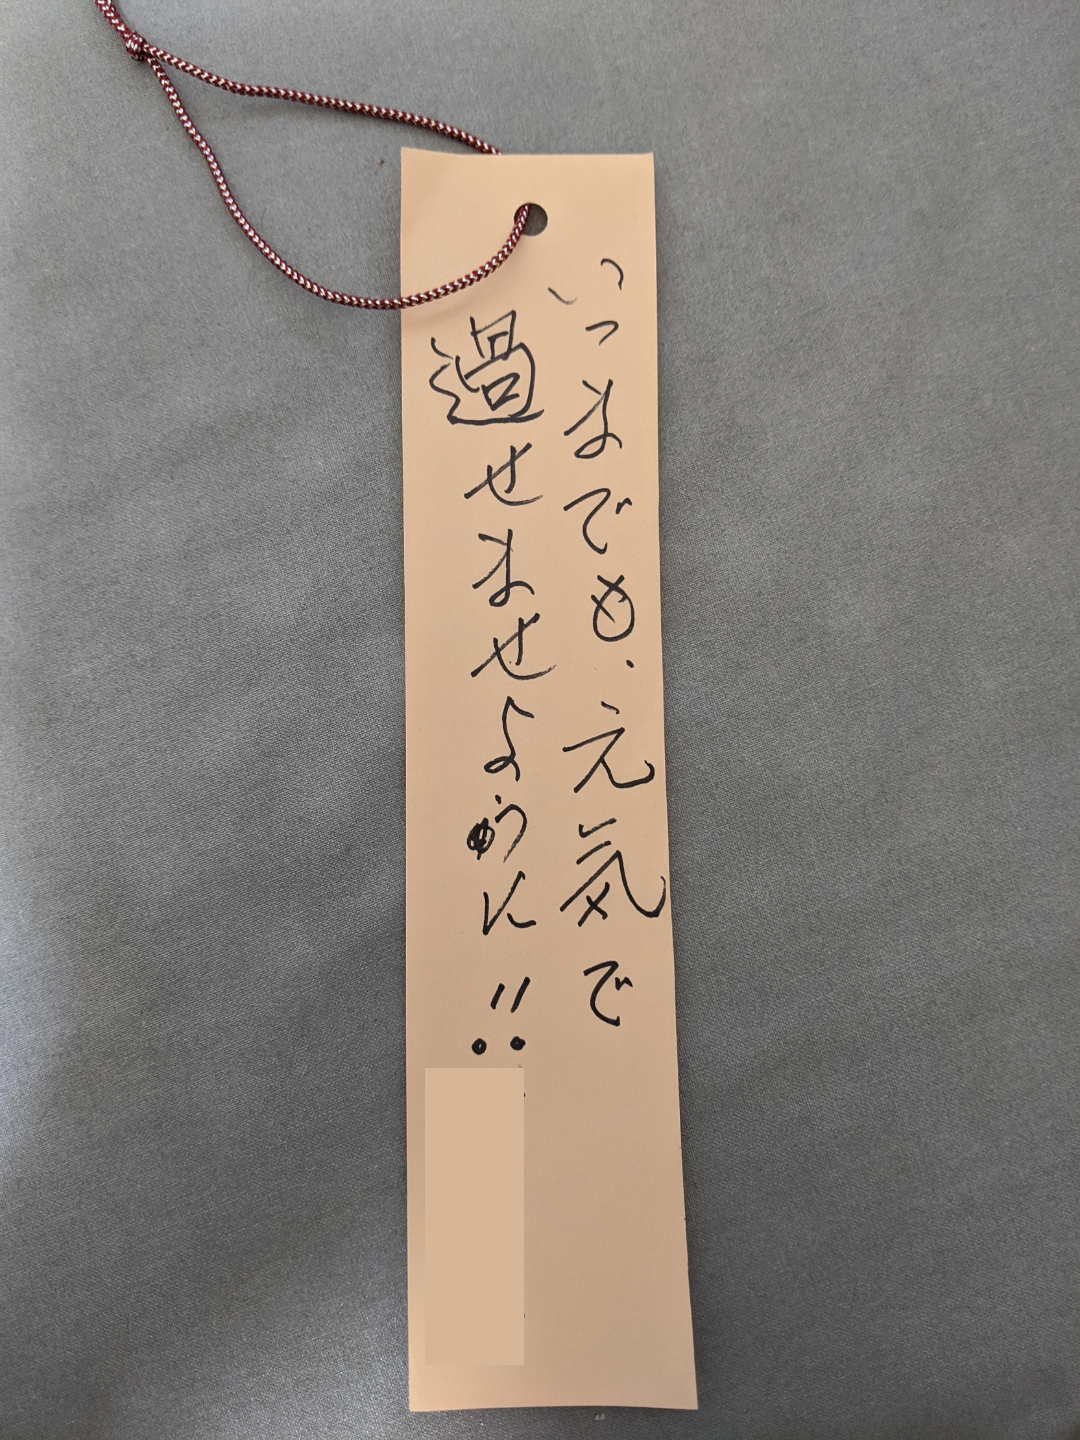 いつまでも、元気で
過せませように!!